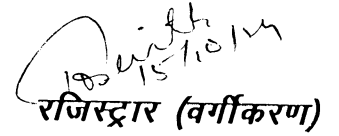 15/10/24
रजिस्ट्रार (वर्गीकरण)